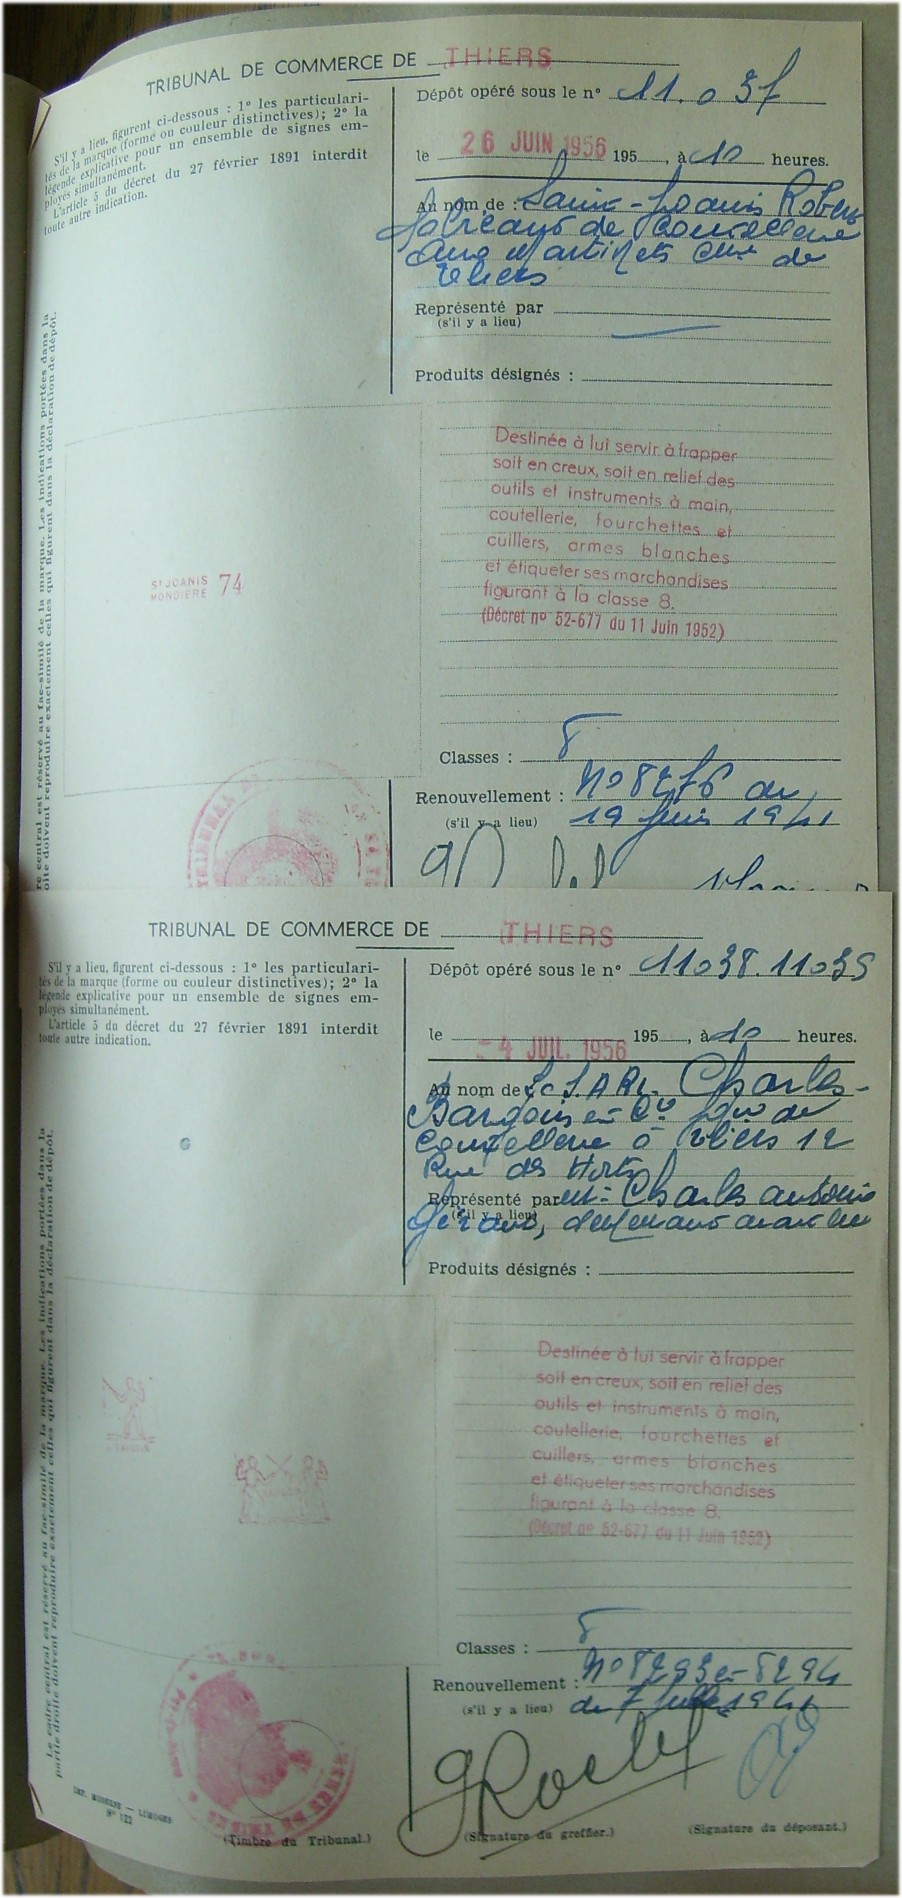 TRIBUNAL DE COMMERCE DE THIERS
S'il y a lieu, figurent ci-dessous : 1º les particulari-
tés de la marque (forme ou couleur distinctives); 2º la
légende explicative pour un ensemble de signes em-
ployés simultanément.
L'article 5 du décret du 27 février 1891 interdit
toute autre indication.
Dépôt opéré sous le nº 11.037
le 26 JUIN 1956 195 , à 10 heures.
Au nom de : Saint-Joanis
de
de
Thiers
Représenté par
(s'il y a lieu)
Produits désignés :
Destinée à lui servir à frapper
soit en creux, soit en relief des
outils et instruments à main,
coutellerie, fourchettes et
cuillers, armes blanches
et étiqueter ses marchandises
figurant à la classe 8.
(Décret nº 52-677 du 11 Juin 1952)
ST JOANIS
MONDIERE 74
re central est réservé au fac-similé de la marque. Les indications portées dans la
oite doivent reproduire exactement celles qui figurent dans la déclaration de dépôt.
Classes : 8
Renouvellement : Nº 8276 du
(s'il y a lieu) 19 Juin 1941
TRIBUNAL DE COMMERCE DE THIERS
S'il y a lieu, figurent ci-dessous : 1º les particulari-
tés de la marque (forme ou couleur distinctives); 2º la
légende explicative pour un ensemble de signes em-
ployés simultanément.
L'article 5 du décret du 27 février 1891 interdit
toute autre indication.
Dépôt opéré sous le nº 11038.11039
le -4 JUIL. 1956 195 , à 10 heures.
Au nom de S.A.R.L. Charles
de
Coutellerie à Thiers 12
Rue des Horts
Représenté par Charles
(s'il y a lieu)
Produits désignés :
Destinée à lui servir à frapper
soit en creux, soit en relief des
outils et instruments à main,
coutellerie, fourchettes et
cuillers, armes blanches
et étiqueter ses marchandises
figurant à la classe 8.
(Décret nº 52-677 du 11 Juin 1952)
Le cadre central est réservé au fac-similé de la marque. Les indications portées dans la
partie droite doivent reproduire exactement celles qui figurent dans la déclaration de dépôt.
Classes : 8
Renouvellement : Nº 8293 et 8294
(s'il y a lieu) du 7 Juillet 1941
IMP. MODERNE — LIMOGES
Nº 122
(Timbre du Tribunal.)
(Signature du greffier.)
(Signature du déposant.)